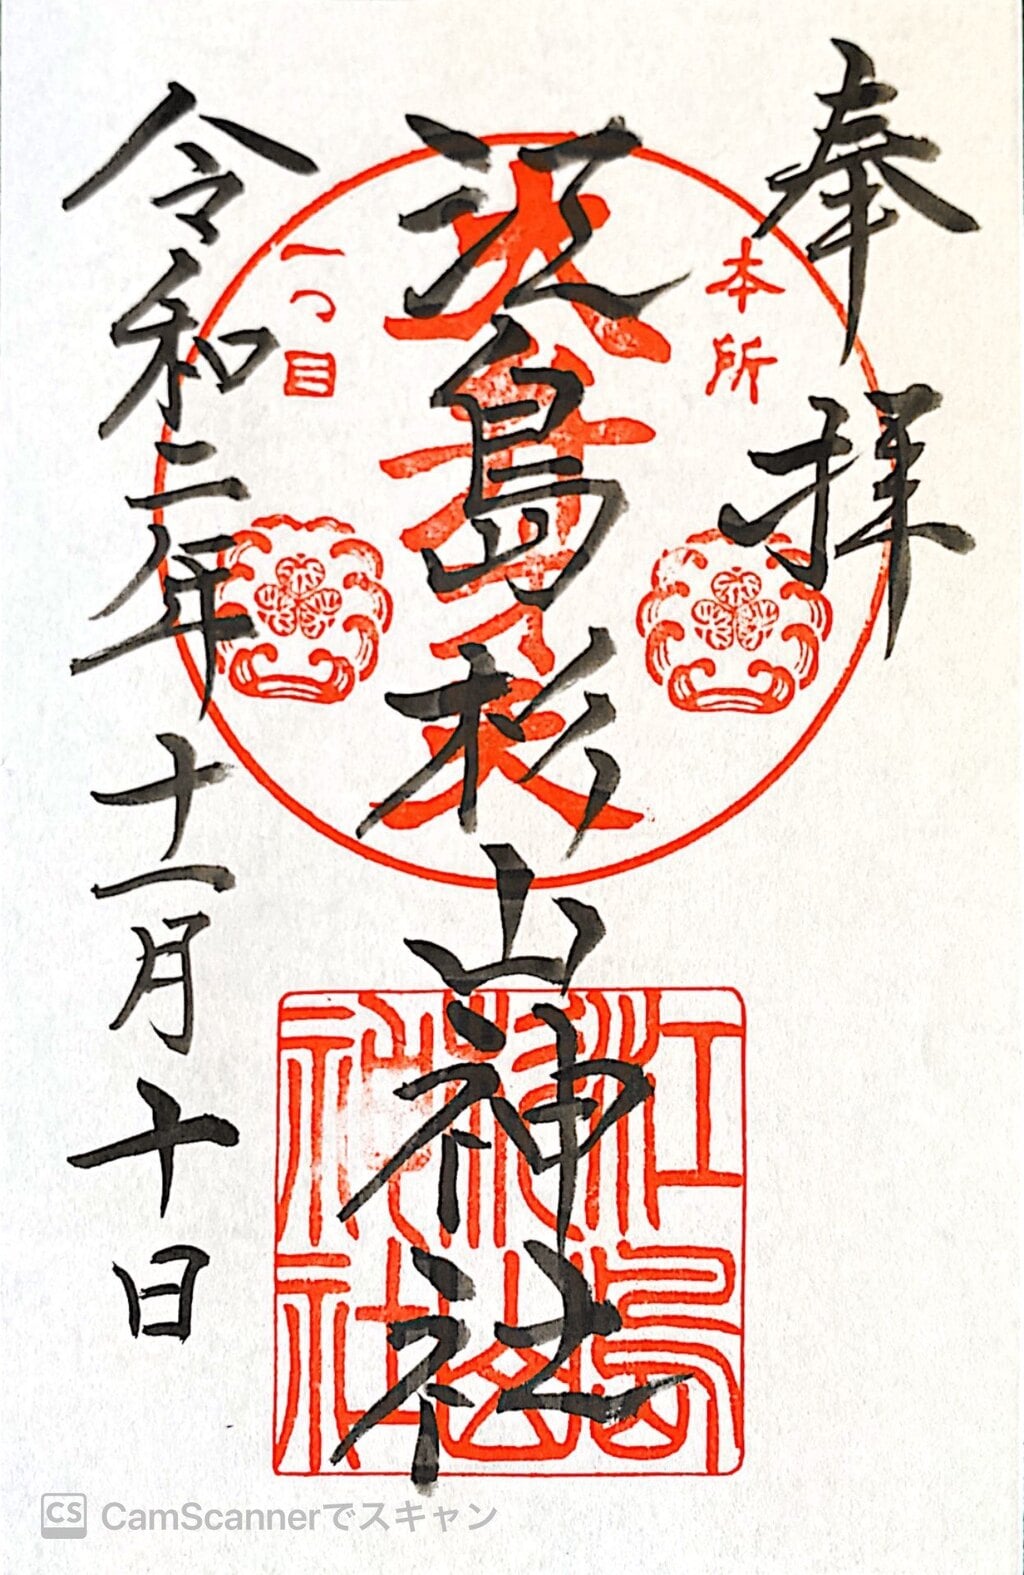 奉拝
本所
江島杉山神社
大弁才天
一つ目
令和二年十一月十日
江島杉山神社
CS CamScannerでスキャン